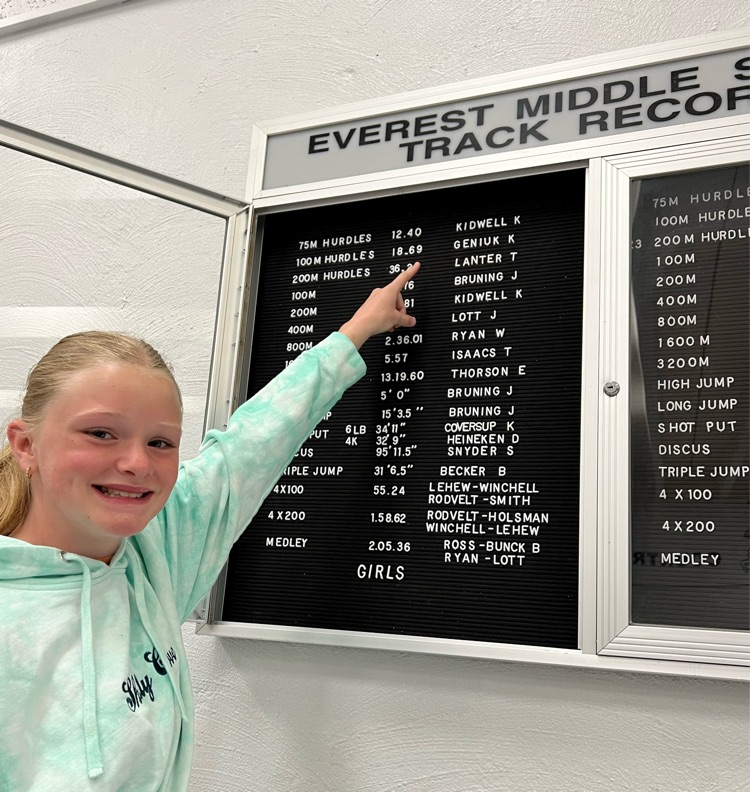 EVEREST MIDDLE S
TRACK RECOR
75M HURDLES 12.40 KIDWELL K
100M HURDLES 18.69 GENIUK K
200M HURDLES 36. LANTER T
100M BRUNING J
200M 81 KIDWELL K
400M LOTT J
800M 2.36.01 RYAN W
5.57 ISAACS T
13.19.60 THORSON E
5' 0" BRUNING J
15' 3.5 " BRUNING J
PUT 6LB 34'11" COVERSUP K
4K 32'9" HEINEKEN D
CUS 95'11.5" SNYDER S
TRIPLE JUMP 31 '6.5" BECKER B
4X100 55.24 LEHEW-WINCHELL
RODVELT-SMITH
4X200 1.58.62 RODVELT-HOLSMAN
WINCHELL-LEHEW
MEDLEY 2.05.36 ROSS-BUNCK B
RYAN -LOTT
GIRLS
75M HURDLE
100M HURDLE
200M HURDL
100M
200M
400M
800M
1600 M
3200M
HIGH JUMP
LONG JUMP
SHOT PUT
DISCUS
TRIPLE JUMP
4 X 100
4 X 200
MEDLEY